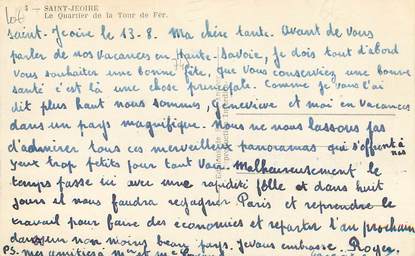 4 - SAINT-JEOIRE
Le Quartier de la Tour de Fer.
Saint. Jeoire le 13-8. Ma chère tante. Avant de vous
parler de nos vacances en Haute-Savoie, je dois tout d'abord
vous souhaiter une bonne fête, que vous conserviez une bonne
santé c'est là une chose principale. Comme je vous l'ai
dit plus haut nous sommes, Geneviève et moi en vacances
dans un pays magnifique. Nous ne nous lassons pas
d'admirer tous ces merveilleux panoramas qui s'offrent à nos
yeux trop petits pour tant voir. Malheureusement le
temps passe ici avec une rapidité folle et dans huit
jours il nous faudra regagner Paris et reprendre le
travail pour faire des économies et repartir l'an prochain
dans un non moins beau pays. Je vous embrasse. Roger
PS. mes amitiés à Mr et Me